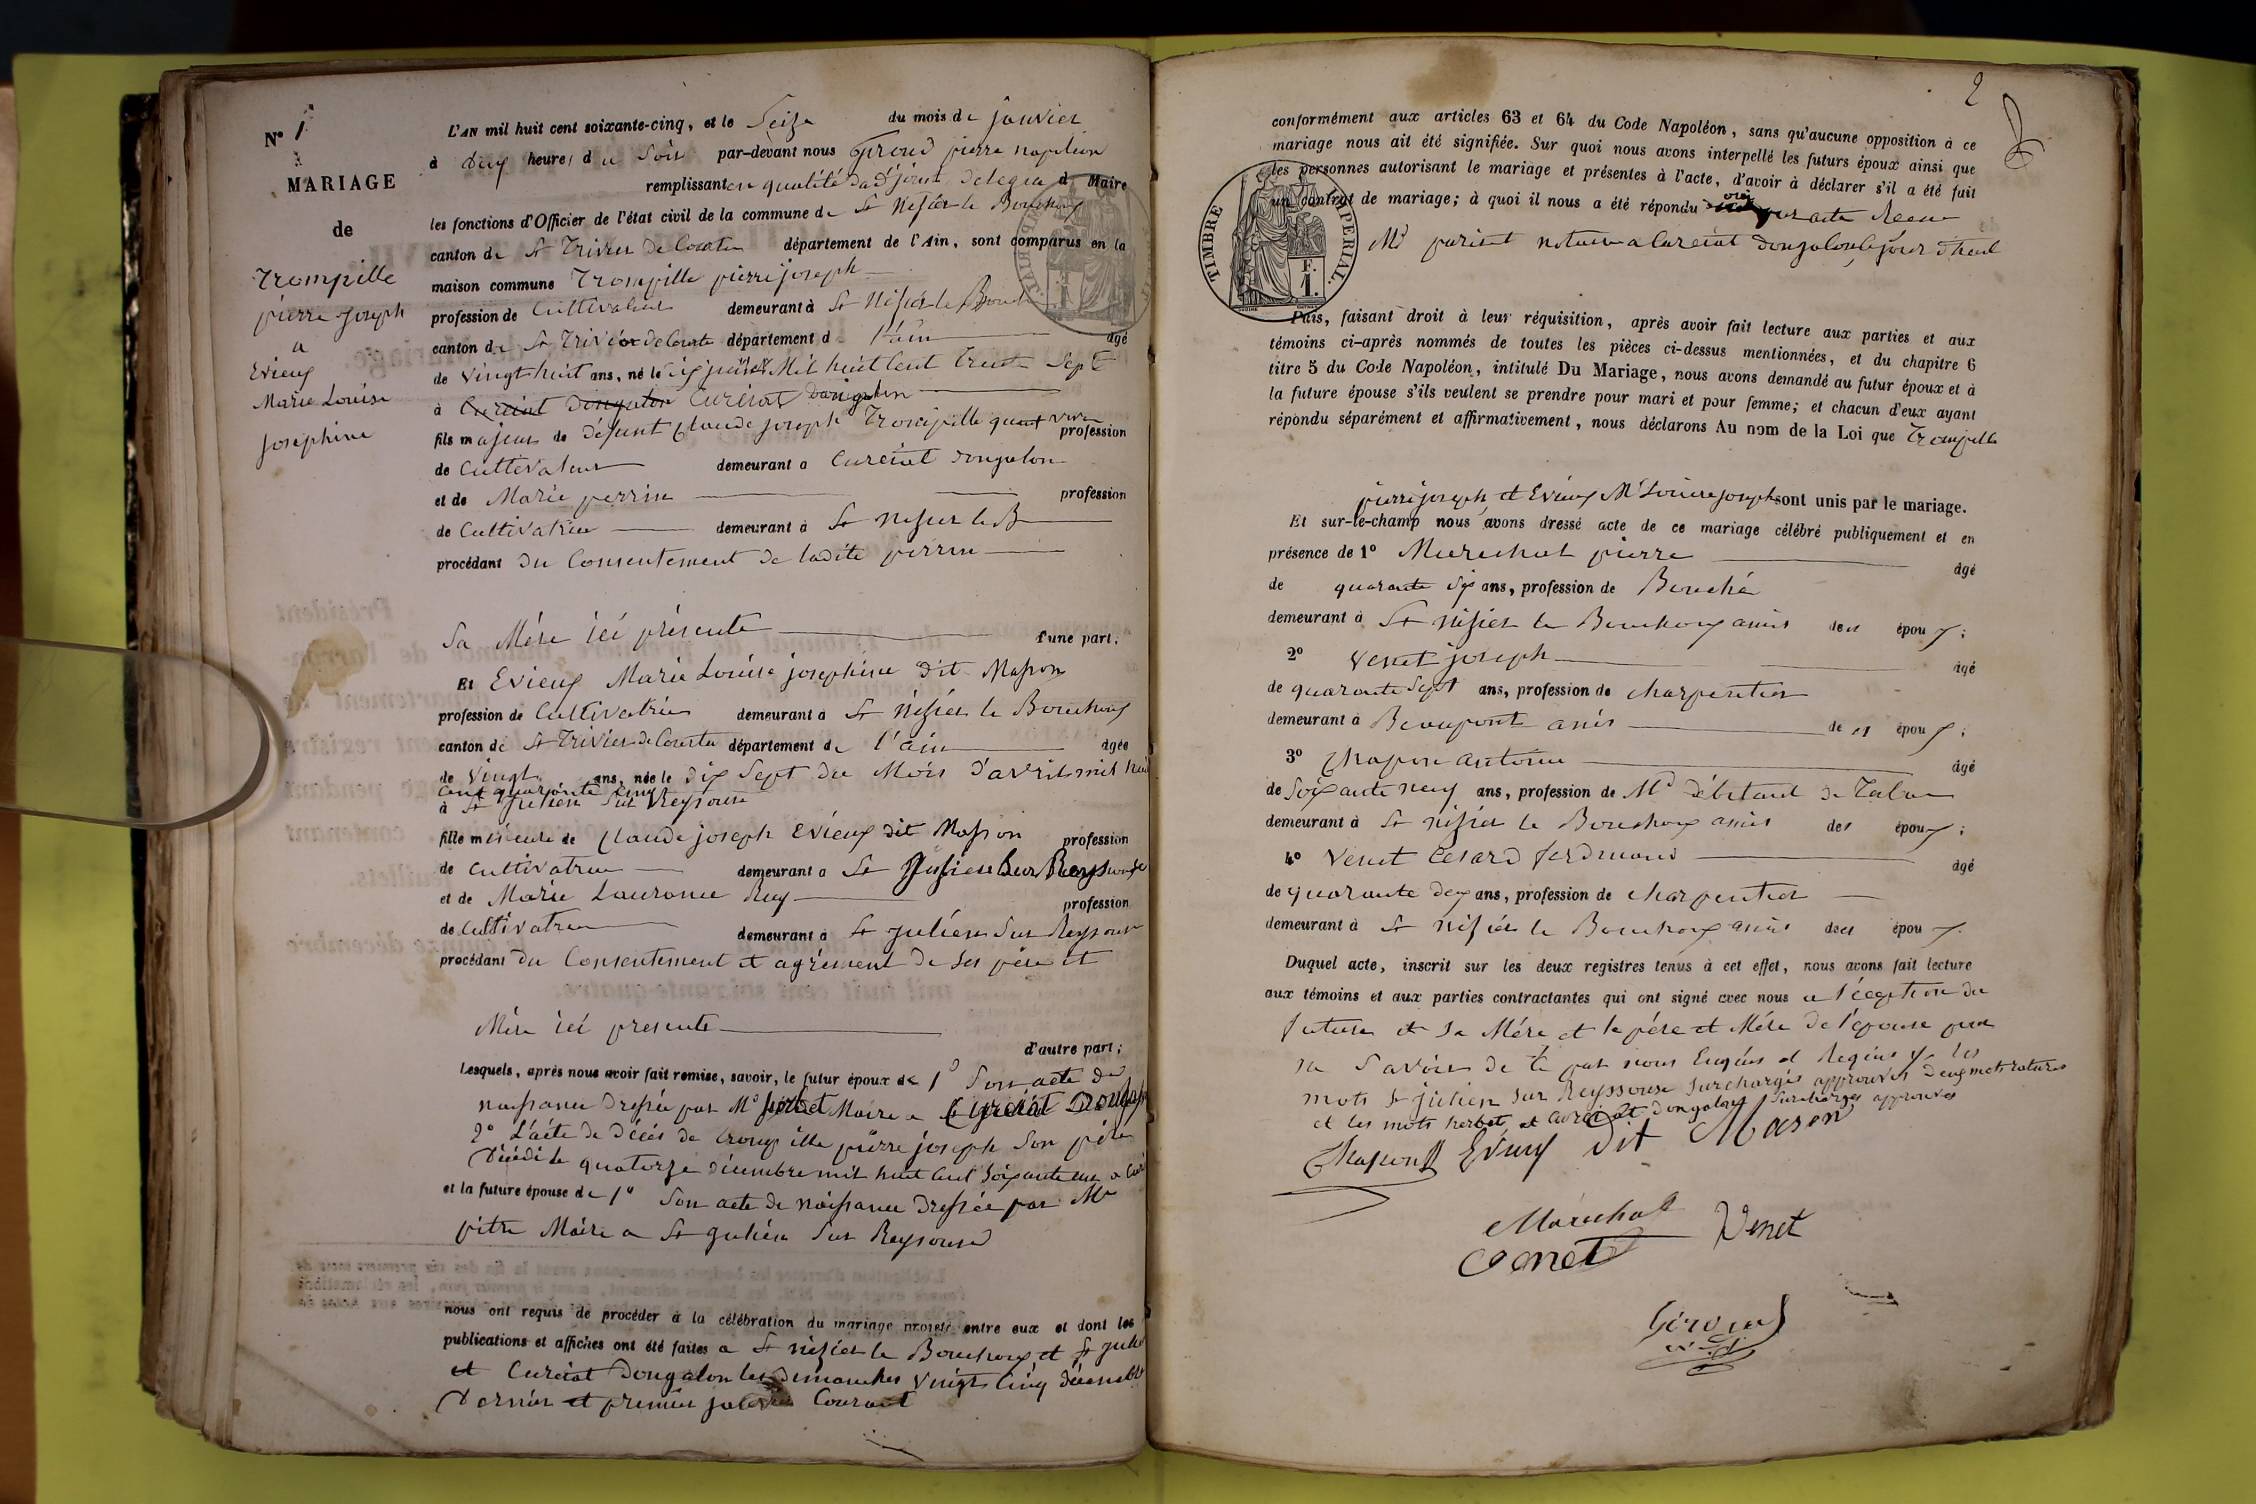 N° 1
MARIAGE
de
Trompille
pierre joseph
a
Evieux
Marie Louise
Josephine
L'AN mil huit cent soixante-cinq, et le Seize du mois de janvier
à deux heures du Soir par-devant nous Giroud pierre napoléon
remplissant en qualité d'adjoint délégué d Maire
les fonctions d'Officier de l'état civil de la commune de St Nisier le Bouchoux
canton de St Trivier de Courtes département de l'Ain, sont comparus en la
maison commune Trompille pierre joseph
profession de Cultivateur demeurant à St Nisier le Bouch
canton de St Trivier de Courte département d l'ain âgé
de Vingt huit ans, né le six Mil huit Cent Trente Sept
à Curciat Dongalon
fils majeur de défunt Claude joseph Trompille quant vivre profession
de Cultivateur demeurant a Curciat dongalon
et de Marie perrin profession
de Cultivatrice demeurant à St Nisier le B
procédant du Consentement de ladite perrin
Sa Mére ici présente d'une part.
Et Evieux Marie Louise josephine dit Masson
profession de Cultivatrice demeurant a St Nisier le Bouchoux
canton de St Trivier de Courtes département de l'ain âgée
de Vingt ans, née le dix Sept du Mois d'avril mil huit
Cent quarante Cinq
à St julien Sur Reyssouse
fille mineure de Claude joseph Evieux dit Masson profession
de Cultivatreur demeurant a St Julien Sur Reyssouse
et de Marie Laurance Rey profession
de Cultivatrice demeurant à St julien Sur Reyssouse
procédant du Consentement et agrément de ses père et
Mére ici presente
d'autre part;
Lesquels, après nous avoir fait remise, savoir, le futur époux de 1° Son acte de
naissance dressée par Mr herbet Maire a Curciat Dongalon
2° L'acte de décés de trompille pierre joseph Son père
Décédé le quatorze décembre mil huit cent soixante un a Curc
et la future épouse de 1° Son acte de naissance dressée par Mr
pitre Maire a St julien Sur Reyssouse
nous ont requis de procéder à la célébration du mariage projeté entre eux et dont les
publications et affiches ont été faites a St nisier le Bouchoux et St julien
et Curciat Dongalon les dimanches Vingt Cinq décembre
Dernier et premier janvier Courant
2
conformément aux articles 63 et 64 du Code Napoléon, sans qu'aucune opposition à ce
mariage nous ait été signifiée. Sur quoi nous avons interpellé les futurs époux ainsi que
les personnes autorisant le mariage et présentes à l'acte, d'avoir à déclarer s'il a été fait
un contrat de mariage; à quoi il nous a été répondu oui par acte Recu
Mr parisat notaire a Curciat dongalon le jour d'heul
TIMBRE IMPERIAL.
F.
1.
Puis, faisant droit à leur réquisition, après avoir fait lecture aux parties et aux
témoins ci-après nommés de toutes les pièces ci-dessus mentionnées, et du chapitre 6
titre 5 du Code Napoléon, intitulé Du Mariage, nous avons demandé au futur époux et à
la future épouse s'ils veulent se prendre pour mari et pour femme; et chacun d'eux ayant
répondu séparément et affirmativement, nous déclarons Au nom de la Loi que Trompille
pierre joseph et Evieux Me Louise joseph sont unis par le mariage.
Et sur-le-champ nous avons dressé acte de ce mariage célébré publiquement et en
présence de 1° Marechal pierre âgé
de quarante six ans, profession de Bouché
demeurant à St nisier le Bouchoux amis des époux;
2° Venet joseph âgé
de quarante Sept ans, profession de charpentier
demeurant à Beaupont amis des époux;
3° Chapon antoine âgé
de Soixante neuf ans, profession de Md débitant de Tabac
demeurant à St nisier le Bouchoux amis des époux;
4° Venet Césard ferdinand âgé
de quarante deux ans, profession de charpentier
demeurant à St nisier le Bouchoux amis des époux.
Duquel acte, inscrit sur les deux registres tenus à cet effet, nous avons fait lecture
aux témoins et aux parties contractantes qui ont signé avec nous a l'éception du
futur et Sa Mére et le pére et Mére de l'épouse pour
ne Savoir de ce par nous Enquis et Requis les
mots St julien Sur Reyssouse Surchargés approuvés deux mots ratures
et les mots herbet et Curciat dongalon Surchargés approuvés
Chapon Evieux dit Mason
Maréchal
Venet Venet
Giroud